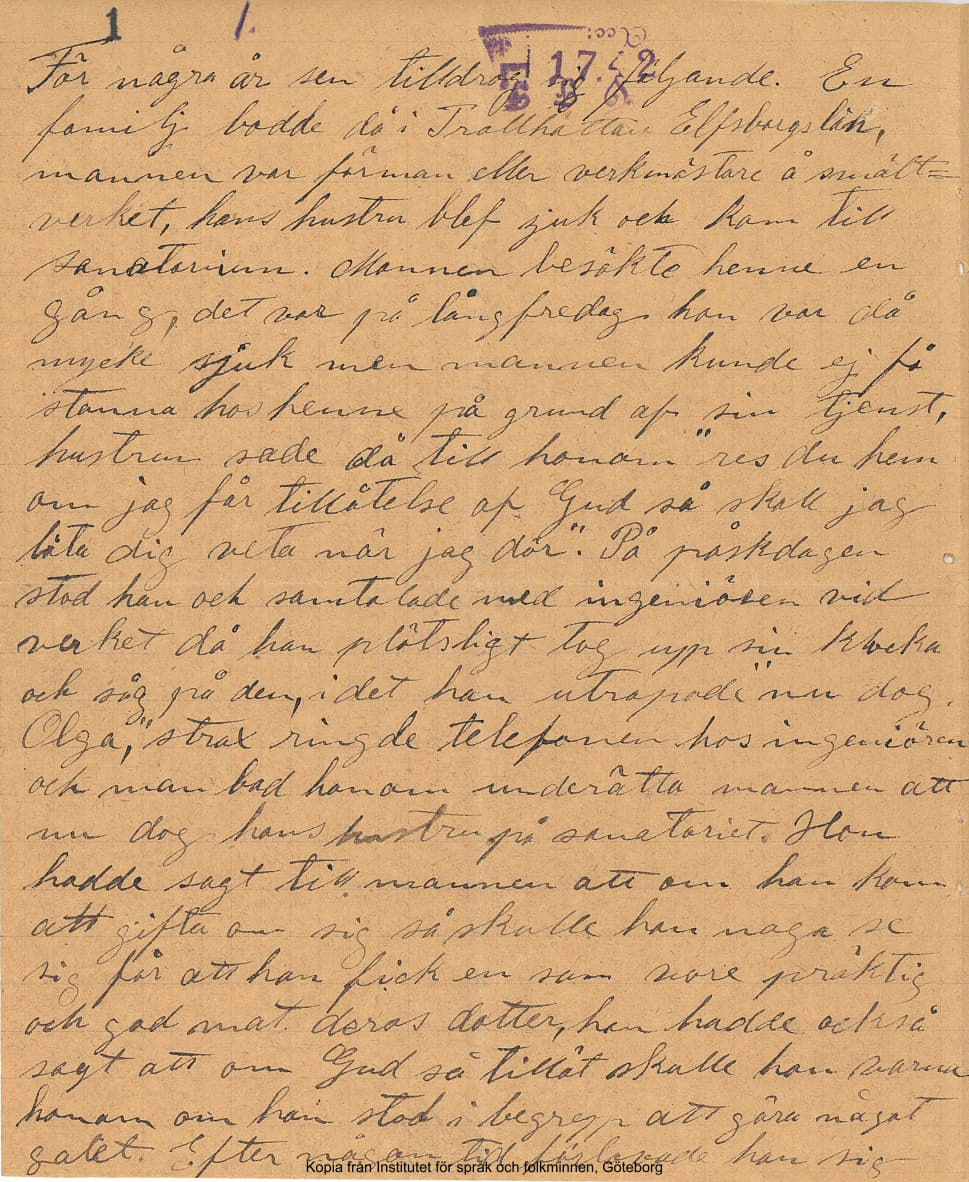 1 1.
Acc:
17.
För några år sen tilldrog sig följande. En
familj bodde då i Trollhättan Elfsborgslän,
mannen var förman eller verkmästare å smält=
verket, hans hustru blef sjuk och kom till
sanatorium. Mannen besökte henne en
gång, det var på långfredag hon var då
mycke sjuk men mannen kunde ej få
stanna hos henne på grund af sin tjenst,
hustrun sade då till honom "res du hem
om jag får tillåtelse af Gud så skall jag
låta dig veta när jag dör". På påskdagen
stod han och samtalade med ingeniören vid
verket då han plötsligt tog upp sin klocka
och såg på den, i det han utropade "nu dog
Olga", strax ringde telefonen hos ingeniören
och man bad honom underätta mannen att
nu dog hans hustru på sanatoriet. Hon
hadde sagt till mannen att om han kom
att gifta om sig så skulle han noga se
sig för att han fick en som vore präktig
och god mot deras dotter, hon hadde också
sagt att om Gud så tillåt skulle hon varna
honom om han stod i begrepp att göra något
galet. Efter någon tid förlovade han sig
Kopia från Institutet för språk och folkminnen, Göteborg